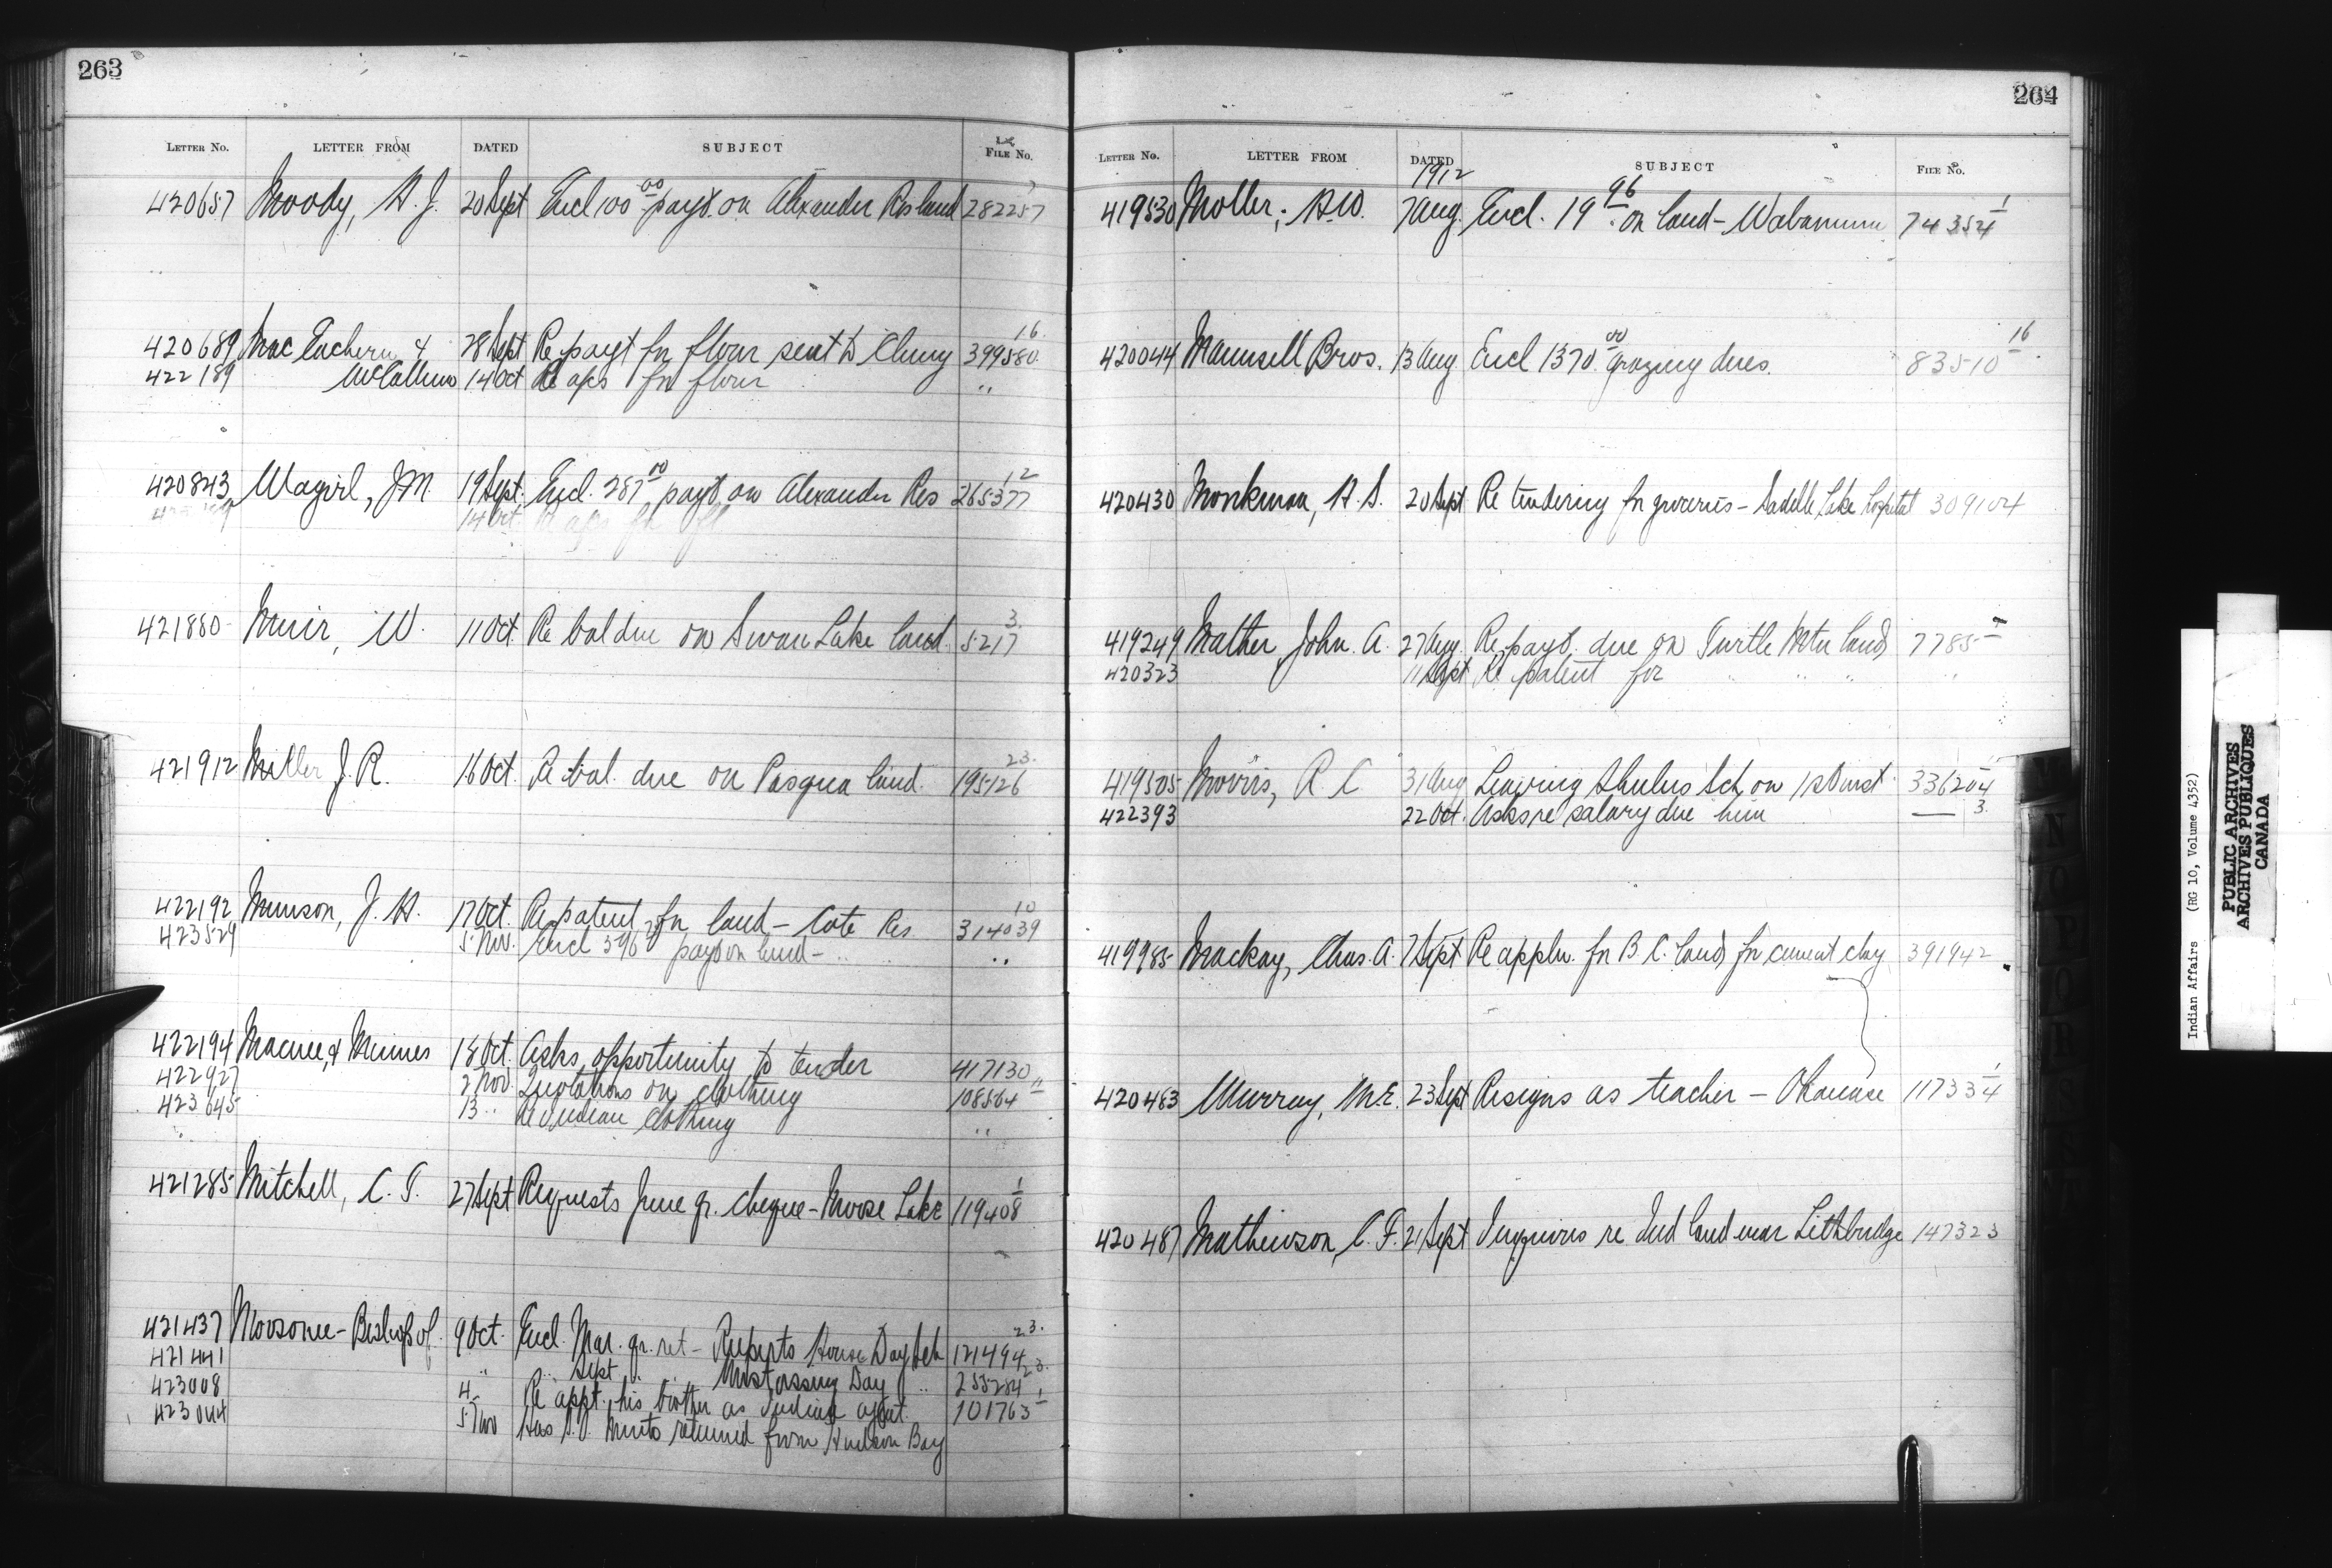 263
LETTER No. LETTER FROM DATED SUBJECT FILE No.
420657 Moody, H. J. 20 Sept Encl 100 00 payt. on Alexander Res land 282257
420689 Mac Eachern & 28 Sept Re payt for flour sent to Cluny 399580 16
422189 McCallum 14 Oct Re a/cs for flour "
420843 Magirl, J.M. 19 Sept. Encl. 287 00 payt. on Alexander Res 265377 12
421880 Muir, W. 11 Oct Re bal due on Swan Lake land. 5217 3
421912 Miller J. R. 16 Oct. Re bal. due on Pasqua land. 195126 23
422192 Munson, J. H. 17 Oct. Re patent for land - Cote Res. 314039 10
423529 5 Nov. Encl 396 payt on land - " " "
422194 Macnee & Minnes 18 Oct. Asks opportunity to tender 417130
422927 2 Nov. Quotations on clothing 108564 11
423645 13 " Re Indian clothing "
421285 Mitchell, C. T. 27 Sept Requests June qr. cheque - Moose Lake 119408 1
421437 Moosonee - Bishop of. 9 Oct. Encl. Mar. qr. ret - Ruperts House Day Sch 121494 23.
421441 " " Sept " " Mistassiny Day " 255284 23.
423008 4 " Re appt. his brother as Indian agent. 101763 1
423044 5 Nov Has S.S. Minto returned from Hudson Bay
264
LETTER No. LETTER FROM DATED SUBJECT FILE No.
1912
419530 Moller, H.W. 7 Aug. Encl. 19 96 on land - Wabamum 74354 1
420044 Maunsell Bros. 13 Aug. Encl 1370 00 grazing dues. 83510 16
420430 Monkman, H. S. 20 Sept Re tendering for groceries - Saddle Lake hospital 309104
419249 Mather, John. A. 27 Aug. Re payt. due on Turtle Mtn land 7785
420323 11 Sept Re patent for " " " "
419505 Morris, R. C 31 Aug Leaving Shulus Sch. on 1st Oct inst. 336204
422393 22 Oct. Asks re salary due him — 3.
419985 Mackay, Chas. A. 7 Sept Re appln. for B. C. land for cement clay 391942
420463 Murray, M.E. 23 Sept Resigns as teacher - Okanase 117334 1
420487 Mathewson, C. F. 21 Sept Inquires re Ind land near Lethbridge 147323
Indian Affairs (RG 10, Volume 4352)
PUBLIC ARCHIVES
ARCHIVES PUBLIQUES
CANADA